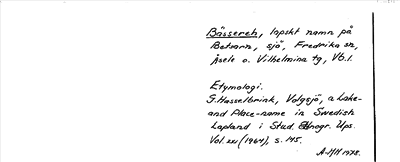 Bässereh, lapskt namn på
Betarn, sjö, Fredrika sn,
Åsele o. Vilhelmina tg, Vb.l.
Etymologi:
G. Hasselbrink, Volgsjö, a Lake-
and Place-name in Swedish
Lapland i Stud. Ethnogr. Ups.
Vol. XXI (1964), s. 145.
A-MH 1978.